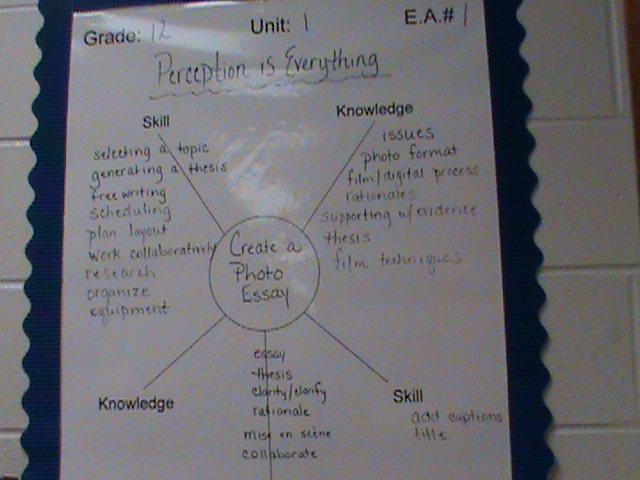 Grade: 12 Unit: 1 E.A.# 1
Perception is Everything
Skill
selecting a topic
generating a thesis
free writing
scheduling
plan layout
work collaboratively
research
organize
equipment
Knowledge
issues
photo format
film/digital process
rationales
supporting w/evidence
thesis
film techniques
Create a
Photo
Essay
Knowledge
essay
thesis
clarity/clarify
rationale
mise en scène
collaborate
Skill
add captions
title